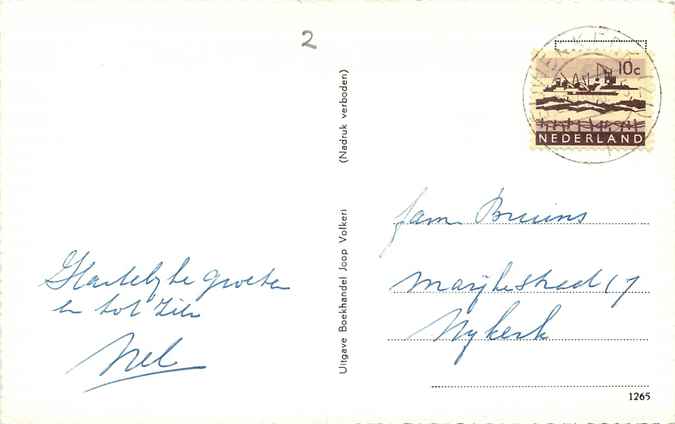 2
10c
NEDERLAND
(Nadruk verboden)
Uitgave Boekhandel Joop Volkeri
Hartelijke groeten
en tot ziens
Nel
fam Bruins
17
Nykerk
1265